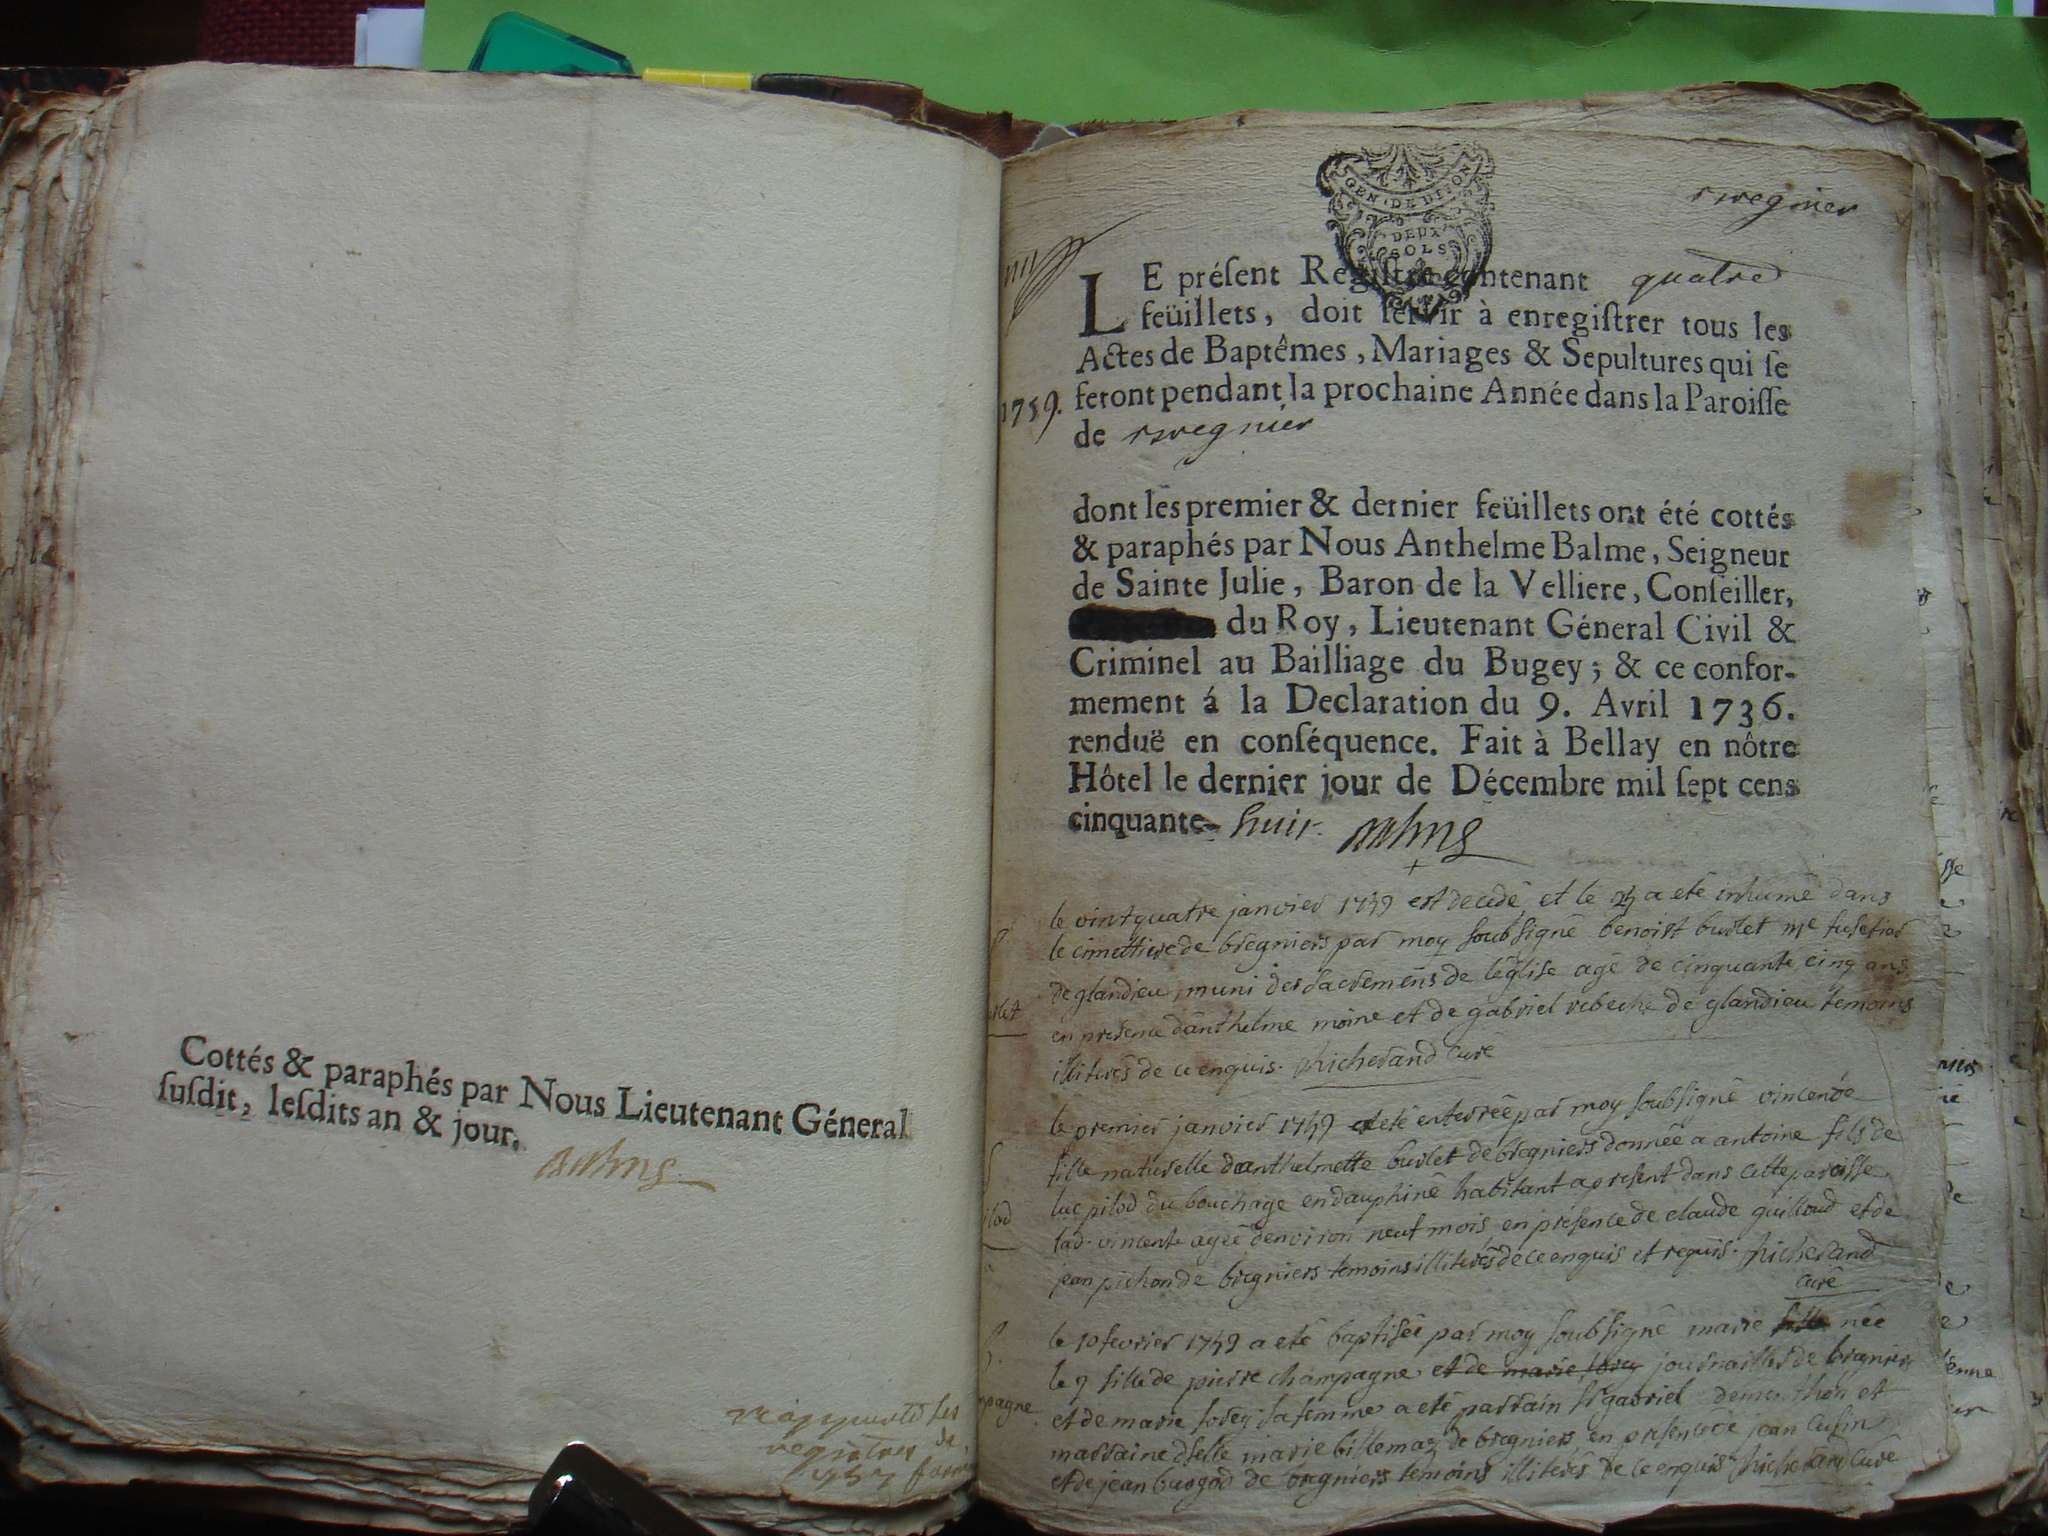 Cottés & paraphés par Nous Lieutenant Géneral
ſuſdit, leſdits an & jour.
GEN · DE DIJON
DEUX
SOLS
1759.
LE préſent Regiſtre contenant quatre
feüillets, doit ſervir à enregiſtrer tous les
Actes de Baptêmes, Mariages & Sepultures qui ſe
feront pendant la prochaine Année dans la Paroiſſe
de
dont les premier & dernier feüillets ont été cottés
& paraphés par Nous Anthelme Balme, Seigneur
de Sainte Julie, Baron de la Velliere, Conſeiller,
du Roy, Lieutenant Géneral Civil &
Criminel au Bailliage du Bugey; & ce confor-
mement á la Declaration du 9. Avril 1736.
renduë en conſéquence. Fait à Bellay en nôtre
Hôtel le dernier jour de Décembre mil ſept cens
cinquante- huit.
le vint quatre janvier 1759 est decedé et le 25 a eté inhumé dans
le cimettiere de bregniers par moy soubsigné benoist burlet me
de glandieu, muni des sacremens de l'église agé de cinquante cinq ans
en presence d'anthelme moine et de gabriel rebeche de glandieu temoins
illiterés de ce enquis. Richerand curé
le premier janvier 1759 a eté enterrée par moy soubsigné vincende
fille naturelle d'anthelmette burlet de bregniers donnée a antoine fils de
luc pilod du bouchage en dauphiné habitant a present dans cette paroisse
lad. vincente agée d'environ neuf mois en présence de claude guilloud et de
jean pichon de bregniers temoins illiterés de ce enquis et requis. Richerand
curé
le 10 fevrier 1759 a eté baptisée par moy soubsigné marie fille née
le 9 fille de pierre champagne et de marie journallier de bregniers
et de marie sa femme a eté parrain sr gabriel et
marraine dlle marie billemaz de bregniers en presence de jean cusin
et de jean burgod de bregniers temoins illiterés de ce enquis Richerand curé